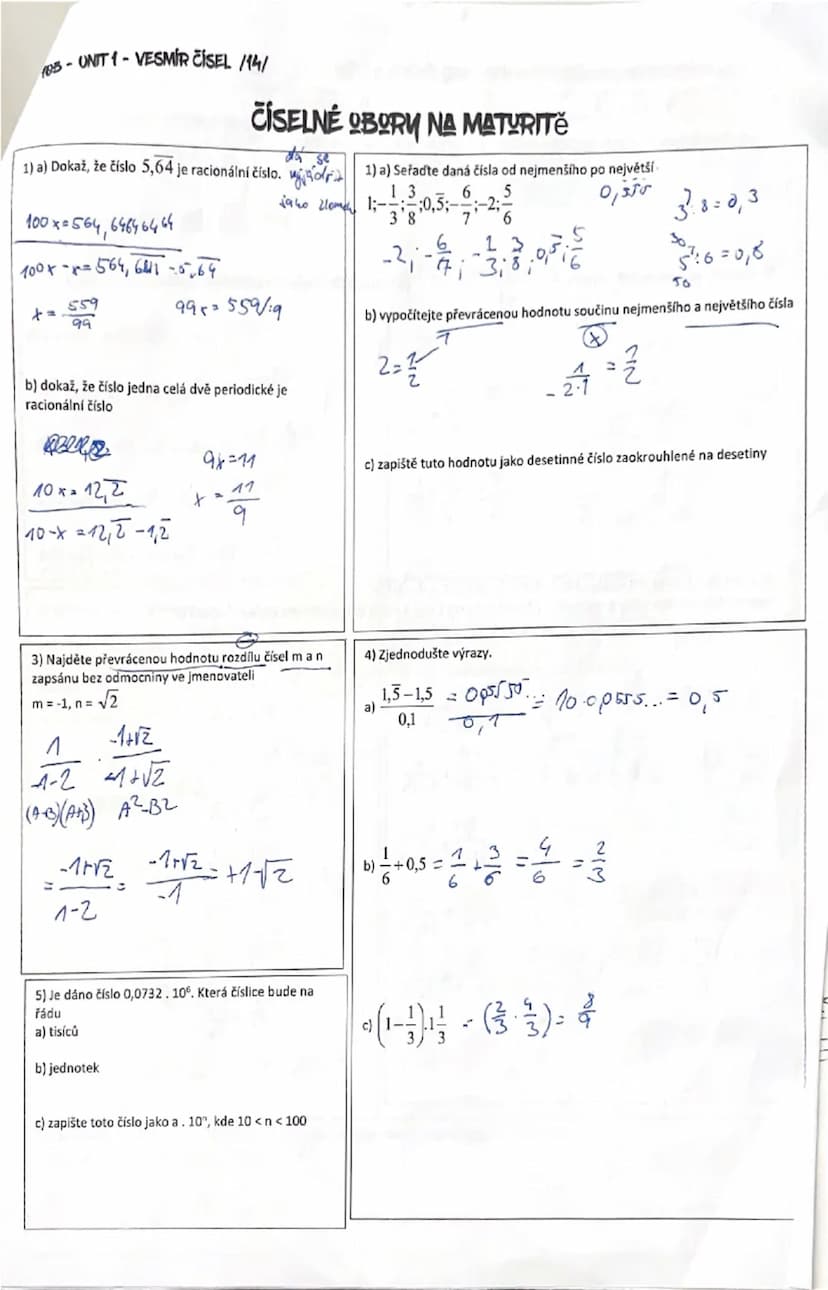 103 - UNIT 1 - VESMÍR ČÍSEL /14/
ČÍSELNÉ OBORY NA MATURITĚ
1) a) Dokaž, že číslo 5,6̅4̅ je racionální číslo.
dá se
vyjádřit
jako zlomek
100x = 564,64646464
100x - x = 564,6̅4̅ - 5,6̅4̅
x = 559/99 99x = 559/:9
b) dokaž, že číslo jedna celá dvě periodické je
racionální číslo
9x = 11
10x = 12,2̅
x = 11/9
10-x = 12,2̅ - 1,2̅
1) a) Seřaďte daná čísla od nejmenšího po největší
1;-1/3;3/8;0,5̅;-6/7;-2;5/6
0,555
3:8 = 0,3
-2; -6/7; -1/3; 3/8; 0,5̅; 5/6
5:6 = 0,8
50
b) vypočítejte převrácenou hodnotu součinu nejmenšího a největšího čísla
2 = 1/2
1/-2·1 = 1/2
c) zapiště tuto hodnotu jako desetinné číslo zaokrouhlené na desetiny
3) Najděte převrácenou hodnotu rozdílu čísel m a n
zapsánu bez odmocniny ve jmenovateli
m = -1, n = √2
1/-1-2 · -1+√2/-1+√2
(A-B)(A+B) A²-B2
= -1+√2/1-2 = -1+√2/-1 = +1-√2
4) Zjednodušte výrazy.
a) 1,5̅-1,5/0,1 = 0,0555.../0,1 = 10·0,0555... = 0,5
b) 1/6+0,5 = 1/6 + 3/6 = 4/6 = 2/3
c) (1-1/3).1 1/3 = (2/3 · 4/3) = 8/9
5) Je dáno číslo 0,0732 . 10⁶. Která číslice bude na
řádu
a) tisíců
b) jednotek
c) zapište toto číslo jako a . 10ⁿ, kde 10 < n < 100